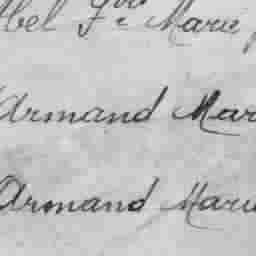 Abel Fr. Marie
Armand Mar
Armand Marie